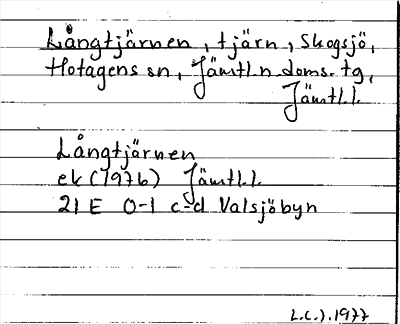 Långtjärnen, tjärn, Skogsjö,
Hotagens sn, Jämtl.n.doms.tg,
Jämtl.l.
Långtjärnen
ek (1976) Jämtl.l.
21 E 0-1 c-d Valsjöbyn
L.C.J.1977